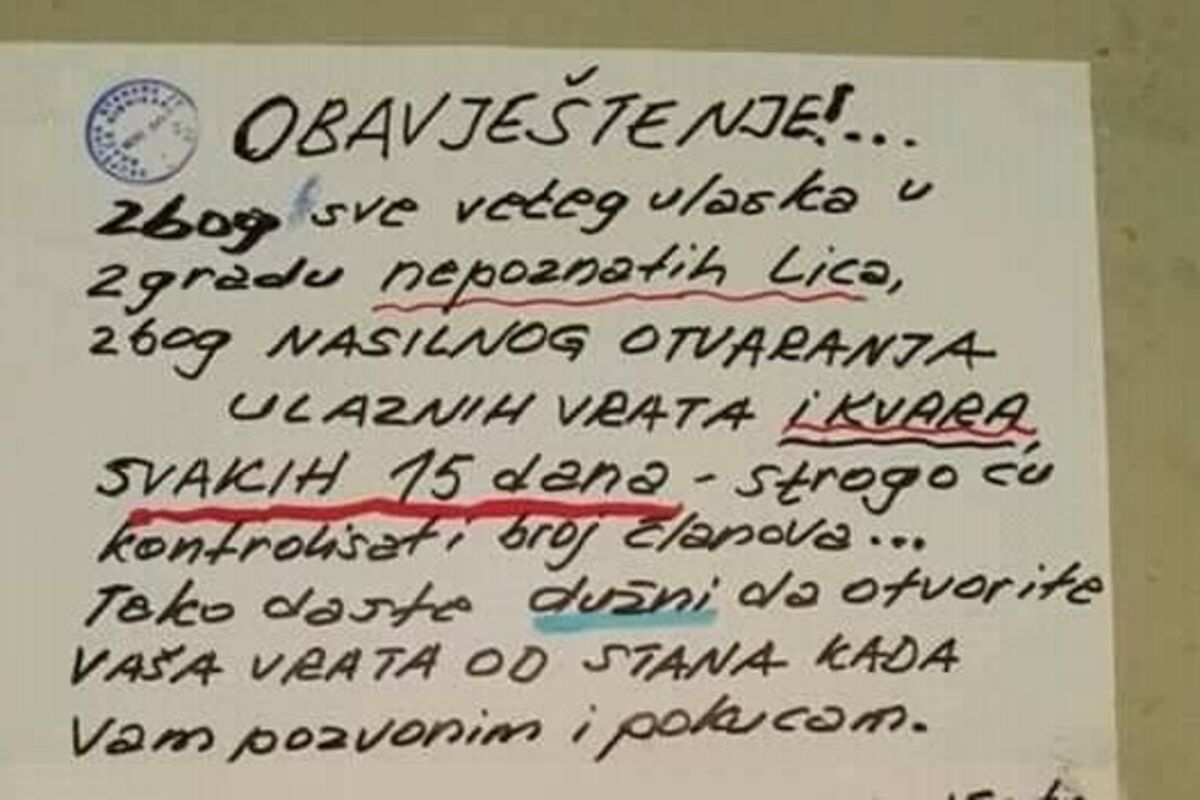 OBAVJEŠTENJE!...
zbog sve većeg ulaska u
zgradu nepoznatih Lica,
zbog NASILNOG OTVARANJA
ULAZNIH VRATA i KVARA,
SVAKIH 15 dana - strogo ću
kontrolisati broj članova...
Tako daste dužni da otvorite
VAŠA VRATA OD STANA KADA
Vam pozvonim i pokucam.